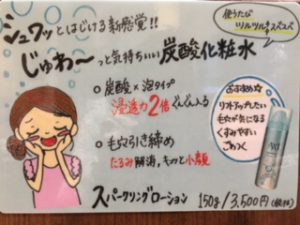 シュワッとはじける新感覚!!
使うたび
ツルツル スベスベ
じゅわ〜っと気持ちいい炭酸化粧水
○ 炭酸×泡タイプ
浸透力2倍 ぐんぐん入る
○ 毛穴引き締め
たるみ解消、キュッと小顔
おすすめ☆
リフトアップしたい
毛穴が気になる
くすみやすい
ごわつく
スパークリングローション 150g/3,500円(税抜)